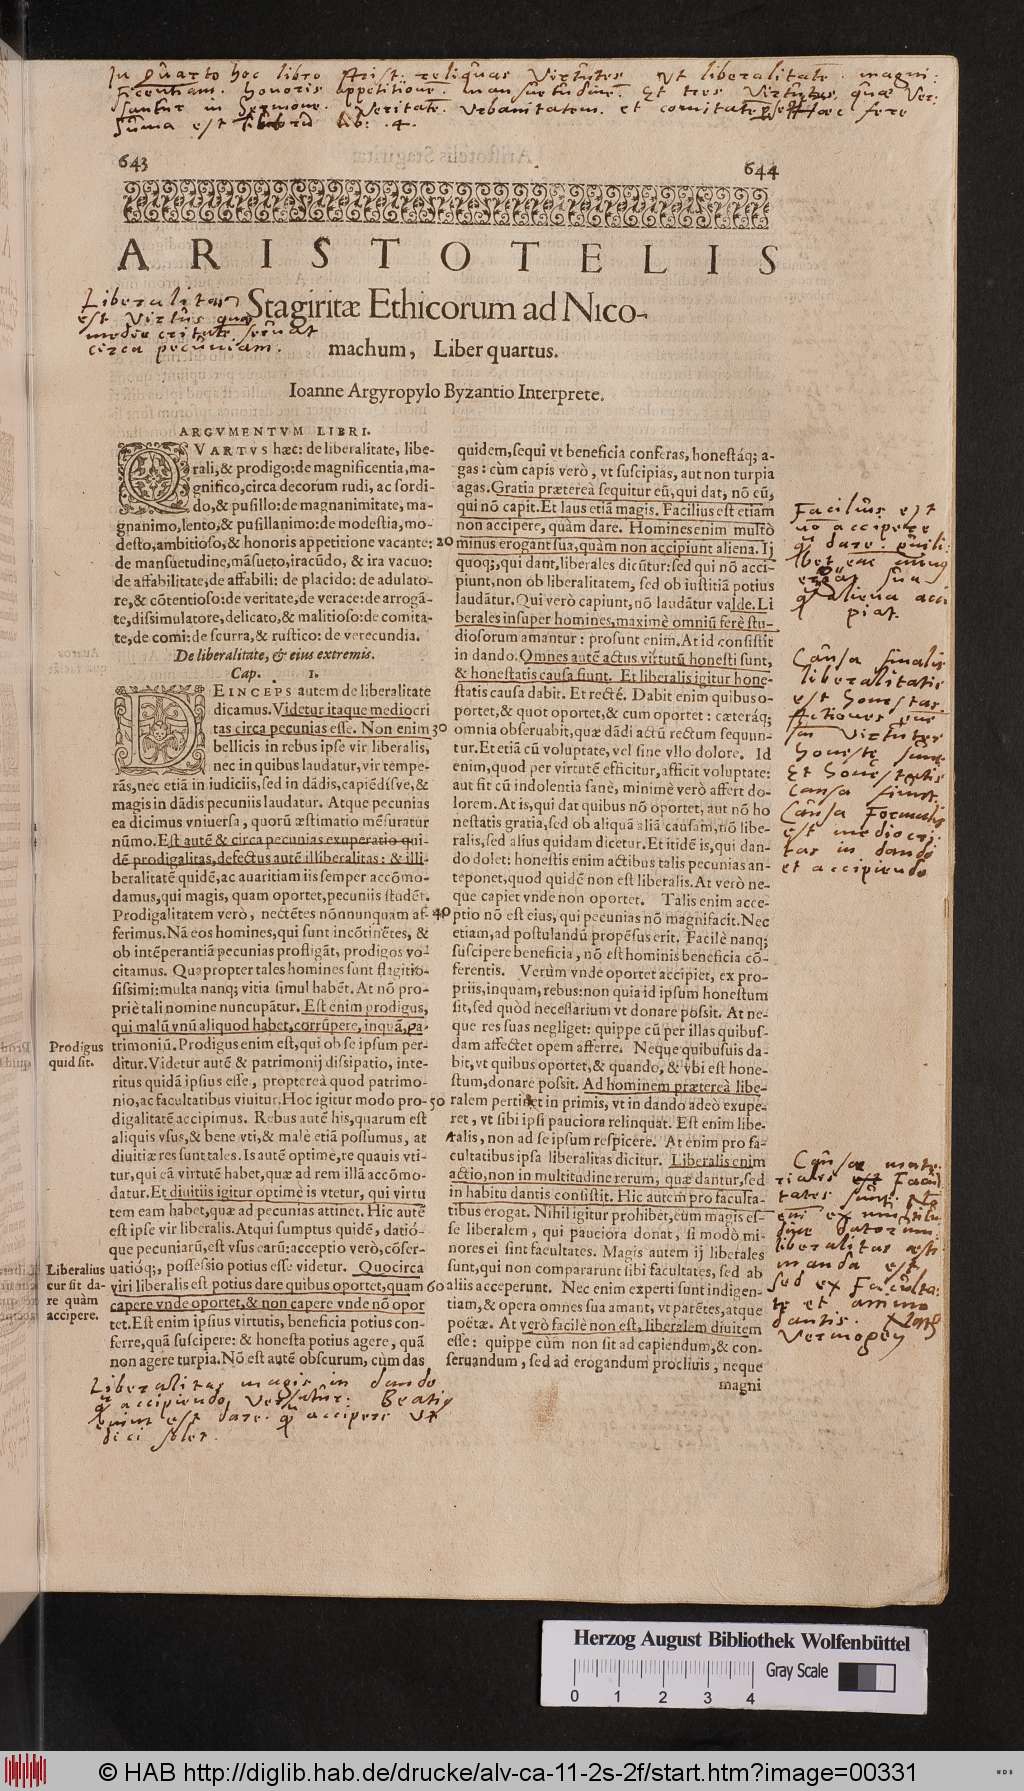 In quarto hoc libro Arist: reliquas Virtutes, Vt liberalitatē. magni:
ficentiam. honoris appetitione. mansuetudinē. Et tres Virtutes quæ Ver:
santur in Sermone. Veritatē. Vrbanitatem. et comitatē. hæc fere
Suma est lib: .4.
643
644
ARISTOTELIS
Stagiritæ Ethicorum ad Nico-
machum, Liber quartus.
Ioanne Argyropylo Byzantio Interprete.
Liberalitas
est Virtus quæ
mediocritatē seruat
circa pecuniam.
ARGVMENTVM LIBRI.
QVARTVS hæc: de liberalitate, libe-
rali, & prodigo: de magnificentia, ma-
gnifico, circa decorum rudi, ac sordi-
do, & pusillo: de magnanimitate, ma-
gnanimo, lento, & pusillanimo: de modestia, mo-
desto, ambitioso, & honoris appetitione vacante:
de mansuetudine, māsueto, iracūdo, & ira vacuo:
de affabilitate, de affabili: de placido: de adulato-
re, & cōtentioso: de veritate, de verace: de arrogā-
te, dissimulatore, delicato, & malitioso: de comita-
te, de comi: de scurra, & rustico: de verecundia.
De liberalitate, & eius extremis.
Cap. I.
DEINCEPS autem de liberalitate
dicamus. Videtur itaque mediocri
tas circa pecunias esse. Non enim
bellicis in rebus ipse vir liberalis,
nec in quibus laudatur, vir tempe-
rās, nec etiā in iudiciis, sed in dādis, capiēdísve, &
magis in dādis pecuniis laudatur. Atque pecunias
ea dicimus vniuersa, quorū æstimatio mēsuratur
nūmo. Est autē & circa pecunias exuperatio qui-
dē prodigalitas, defectus autē illiberalitas: & illi-
beralitatē quidē, ac auaritiam iis semper accōmo-
damus, qui magis, quam oportet, pecuniis studēt.
Prodigalitatem verò, nectētes nōnnunquam af-
ferimus. Nā eos homines, qui sunt incōtinētes, &
ob intēperantiā pecunias profligāt, prodigos vo-
citamus. Quapropter tales homines sunt flagitio-
sissimi: multa nanq; vitia simul habēt. At nō pro-
priè tali nomine nuncupātur. Est enim prodigus,
qui malū vnū aliquod habet, corrūpere, inquā, pa-
trimoniū. Prodigus enim est, qui ob se ipsum per-
ditur. Videtur autē & patrimonij dissipatio, inte-
ritus quidā ipsius esse, proptereà quod patrimo-
nio, ac facultatibus viuitur. Hoc igitur modo pro-
digalitatē accipimus. Rebus autē his, quarum est
aliquis vsus, & bene vti, & malè etiā possumus, at
diuitiæ res sunt tales. Is autē optimè, re quauis vti-
tur, qui eā virtutē habet, quæ ad rem illā accōmo-
datur. Et diuitiis igitur optimè is vtetur, qui virtu
tem eam habet, quæ ad pecunias attinet. Hic autē
est ipse vir liberalis. Atqui sumptus quidē, datió-
que pecuniarū, est vsus earū: acceptio verò, cōser-
uatióq;, possessio potius esse videtur. Quocirca
viri liberalis est potius dare quibus oportet, quam
capere vnde oportet, & non capere vnde nō opor
tet. Est enim ipsius virtutis, beneficia potius con-
ferre, quā suscipere: & honesta potius agere, quā
non agere turpia. Nō est autē obscurum, cùm das
Prodigus
quid sit.
Liberalius
cur sit da-
re quàm
accipere.
20
30
40
50
60
quidem, sequi vt beneficia conferas, honestáq; a-
gas: cùm capis verò, vt suscipias, aut non turpia
agas. Gratia prætereà sequitur eū, qui dat, nō eū,
qui nō capit. Et laus etiā magis. Facilius est etiam
non accipere, quàm dare. Homines enim multò
minus erogant sua, quàm non accipiunt aliena. Ij
quoq;, qui dant, liberales dicūtur: sed qui nō acci-
piunt, non ob liberalitatem, sed ob iustitiā potius
laudātur. Qui verò capiunt, nō laudātur valde. Li
berales insuper homines, maximè omniū ferè stu-
diosorum amantur: prosunt enim. At id consistit
in dando. Omnes autē actus virtutū honesti sunt,
& honestatis causa fiunt. Et liberalis igitur hone-
statis causa dabit. Et rectè. Dabit enim quibus o-
portet, & quot oportet, & cum oportet: cæteráq;
omnia obseruabit, quæ dādi actū rectum sequun-
tur. Et etiā cū voluptate, vel sine vllo dolore. Id
enim, quod per virtutē efficitur, afficit voluptate:
aut sit cū indolentia sanè, minimè verò affert do-
lorem. At is, qui dat quibus nō oportet, aut nō ho
nestatis gratia, sed ob aliquā aliā causam, nō libe-
ralis, sed alius quidam dicetur. Et itidē is, qui dan-
do dolet: honestis enim actibus talis pecunias an-
teponet, quod quidē non est liberalis. At verò ne-
que capiet vnde non oportet. Talis enim acce-
ptio nō est eius, qui pecunias nō magnifacit. Nec
etiam, ad postulandū propēsus erit. Facilè nanq;
suscipere beneficia, nō est hominis beneficia cō-
ferentis. Verùm vnde oportet accipiet, ex pro-
priis, inquam, rebus: non quia id ipsum honestum
sit, sed quòd necessarium vt donare possit. At ne-
que res suas negliget: quippe cū per illas quibus-
dam affectet opem afferre. Neque quibusuis da-
bit, vt quibus oportet, & quando, & vbi est hone-
stum, donare possit. Ad hominem prætereà libe-
ralem pertinet in primis, vt in dando adeò exupe-
ret, vt sibi ipsi pauciora relinquat. Est enim libe-
ralis, non ad se ipsum respicere. At enim pro fa-
cultatibus ipsa liberalitas dicitur. Liberalis enim
actio, non in multitudine rerum, quæ dantur, sed
in habitu dantis consistit. Hic autem pro faculta-
tibus erogat. Nihil igitur prohibet, eum magis es-
se liberalem, qui pauciora donat, si modò mi-
nores ei sint facultates. Magis autem ij liberales
sunt, qui non compararunt sibi facultates, sed ab
aliis acceperunt. Nec enim experti sunt indigen-
tiam, & opera omnes sua amant, vt parētes, atque
poëtæ. At verò facilè non est, liberalem diuitem
esse: quippe cùm non sit ad capiendum, & con-
seruandum, sed ad erogandum procliuis, neque
magni
Facilius est
nō accipere
dare.
sua
aliena acci
piat.
Causa finalis
liberalitatis
est honestas
Actiones
Virtutes
honeste sunt
Et honestatis
causa fiunt.
Causa Formalis
est mediocri
tas in dando
et accipiendo
Causa mate:
rialis est Facul
tates sunt.
ex multitu
dine datorum
liberalitas æsti
manda est
sed ex Faculta:
te et animo
dantis.
Vermogen
Liberalitas magis in dando
accipiendo, Versatur: Beatiq
enim est dare accipere Vt
dici solet.
Herzog August Bibliothek Wolfenbüttel
Gray Scale
0 1 2 3 4
© HAB http://diglib.hab.de/drucke/alv-ca-11-2s-2f/start.htm?image=00331